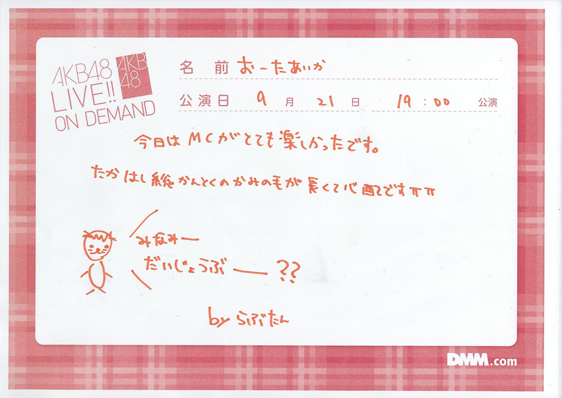 AKB48
LIVE!!
ON DEMAND
AKB
48
名 前 おーたあいか
公演日 9 月 21 日 19:00 公演
今日はMCがとても楽しかったです。
たかはし総かんとくのかみの毛が長くて心配ですππ
みなみー
だいじょうぶー??
by らぶたん
DMM.com